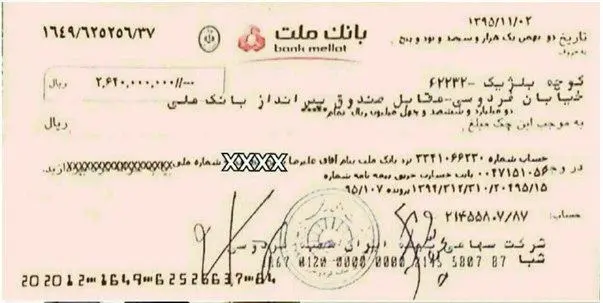 ۱۶۴۹/۶۲۵۲۵۶/۳۷
بانک ملت
bank mellat
۱۳۹۵/۱۱/۰۲
تاریخ دو بهمن یک هزار و سیصد و نود و پنج
۲,۶۴۰,۰۰۰,۰۰۰//-- ریال
کوچه بلژیک -۶۲۲۳۲
خیابان فردوسی-مقابل صندوق پس انداز بانک ملی
دو میلیارد و ششصد و چهل میلیون ریال تمام
به موجب این چک مبلغ ریال
حساب شماره ۳۳۴۱۰۶۶۲۳۰ نزد بانک ملت بنام آقای علیرضا XXXX شماره ملی
در وجه
۰۰۴۷۱۵۱۰۵۶ بابت خسارت حریق بیمه نامه شماره
۱۳۹۴/۳۱۲/۳۱۰/۲۰۴۹۵/۱۵ پرونده ۹۵/۱۰۷
حساب: ۲۱۴۵۵۸۰۷/۸۷
شرکت سهامی بیمه ایران شعبه فردوسی
شبا 0120 0000 0000 2145 5807 87
202012 1649 62526637 64